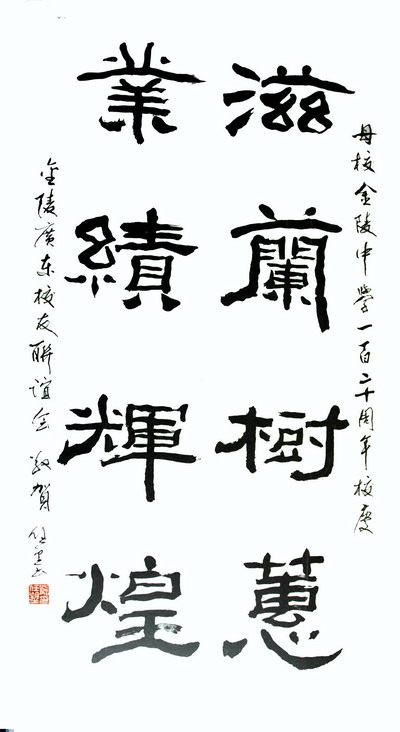 母校金陵中學一百二十周年校慶
滋蘭樹蕙
業績輝煌
金陵廣東校友聯誼会敬賀